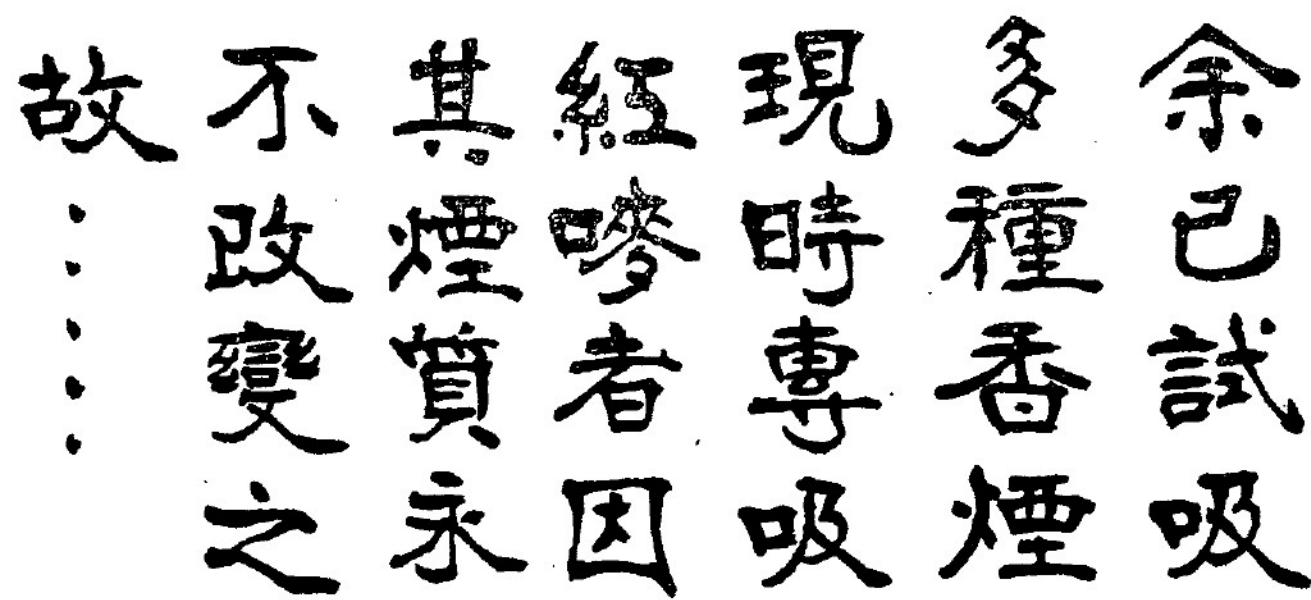 余已試吸
多種香煙
現時專吸
紅嘜者因
其煙質永
不改變之
故.....